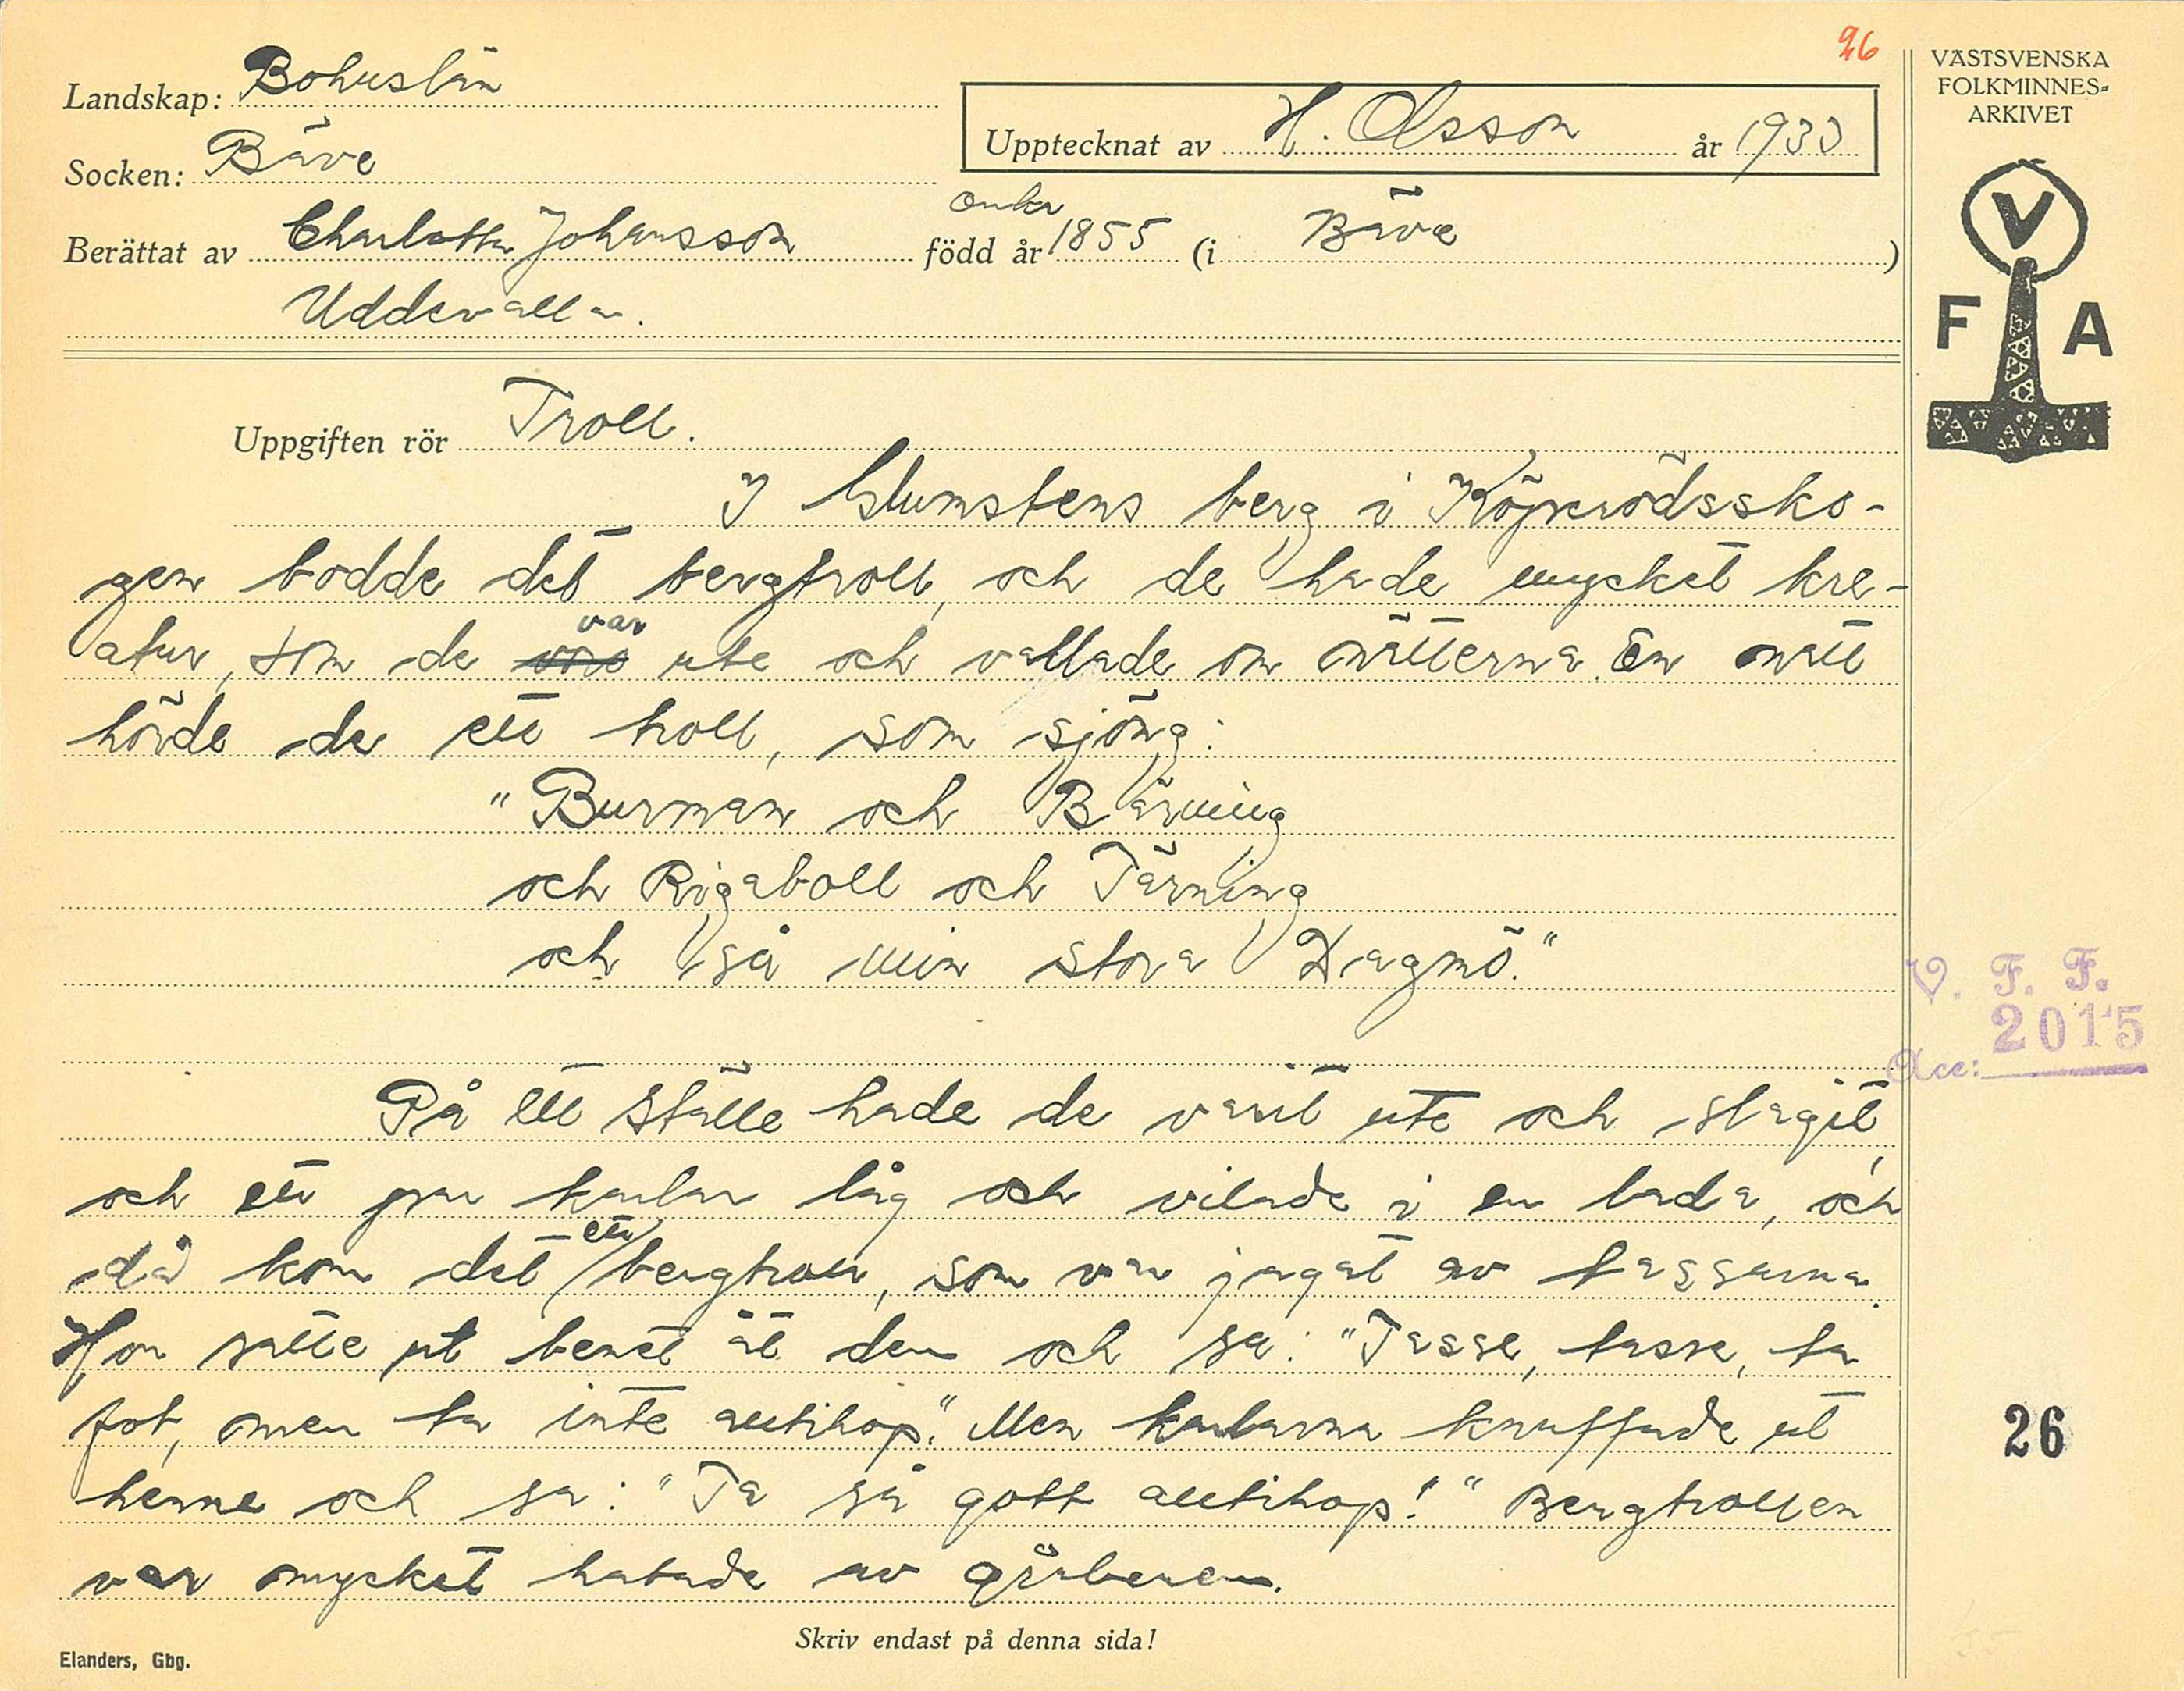 26
VÄSTSVENSKA
FOLKMINNES-
ARKIVET
Landskap: Bohuslän
Upptecknat av H. Olsson år 1933
Socken: Bäve
omkr
Berättat av Charlotta Johansson född år 1855 (i Bäve)
Uddevalla.
V
F A
Uppgiften rör Troll.
I Glumstens berg i Köperödssko-
gen bodde det bergtroll, och de hade mycket kre-
atur, som de voro var ute och vallade om nätterna. En natt
hörde de ett troll, som sjöng:
"Burman och Bärning
och Rigaboll och Tärning
och så min stora Dagmö."
V. F. F.
2015
Acc:
På ett ställe hade de varit ute och slagit,
och ett par karlar låg och vilade i en lada, och
då kom det ett bergtroll, som var jagat av tassarna.
Hon satte ut benet åt dem och sa: "Tasse, tasse, ta
fot, men ta inte alltihop." Men karlarna knuffade ut
26
henne och sa: "Ta så gott alltihop!" Bergtrollen
var mycket hatade av gråbenen.
Skriv endast på denna sida!
Elanders, Gbg.